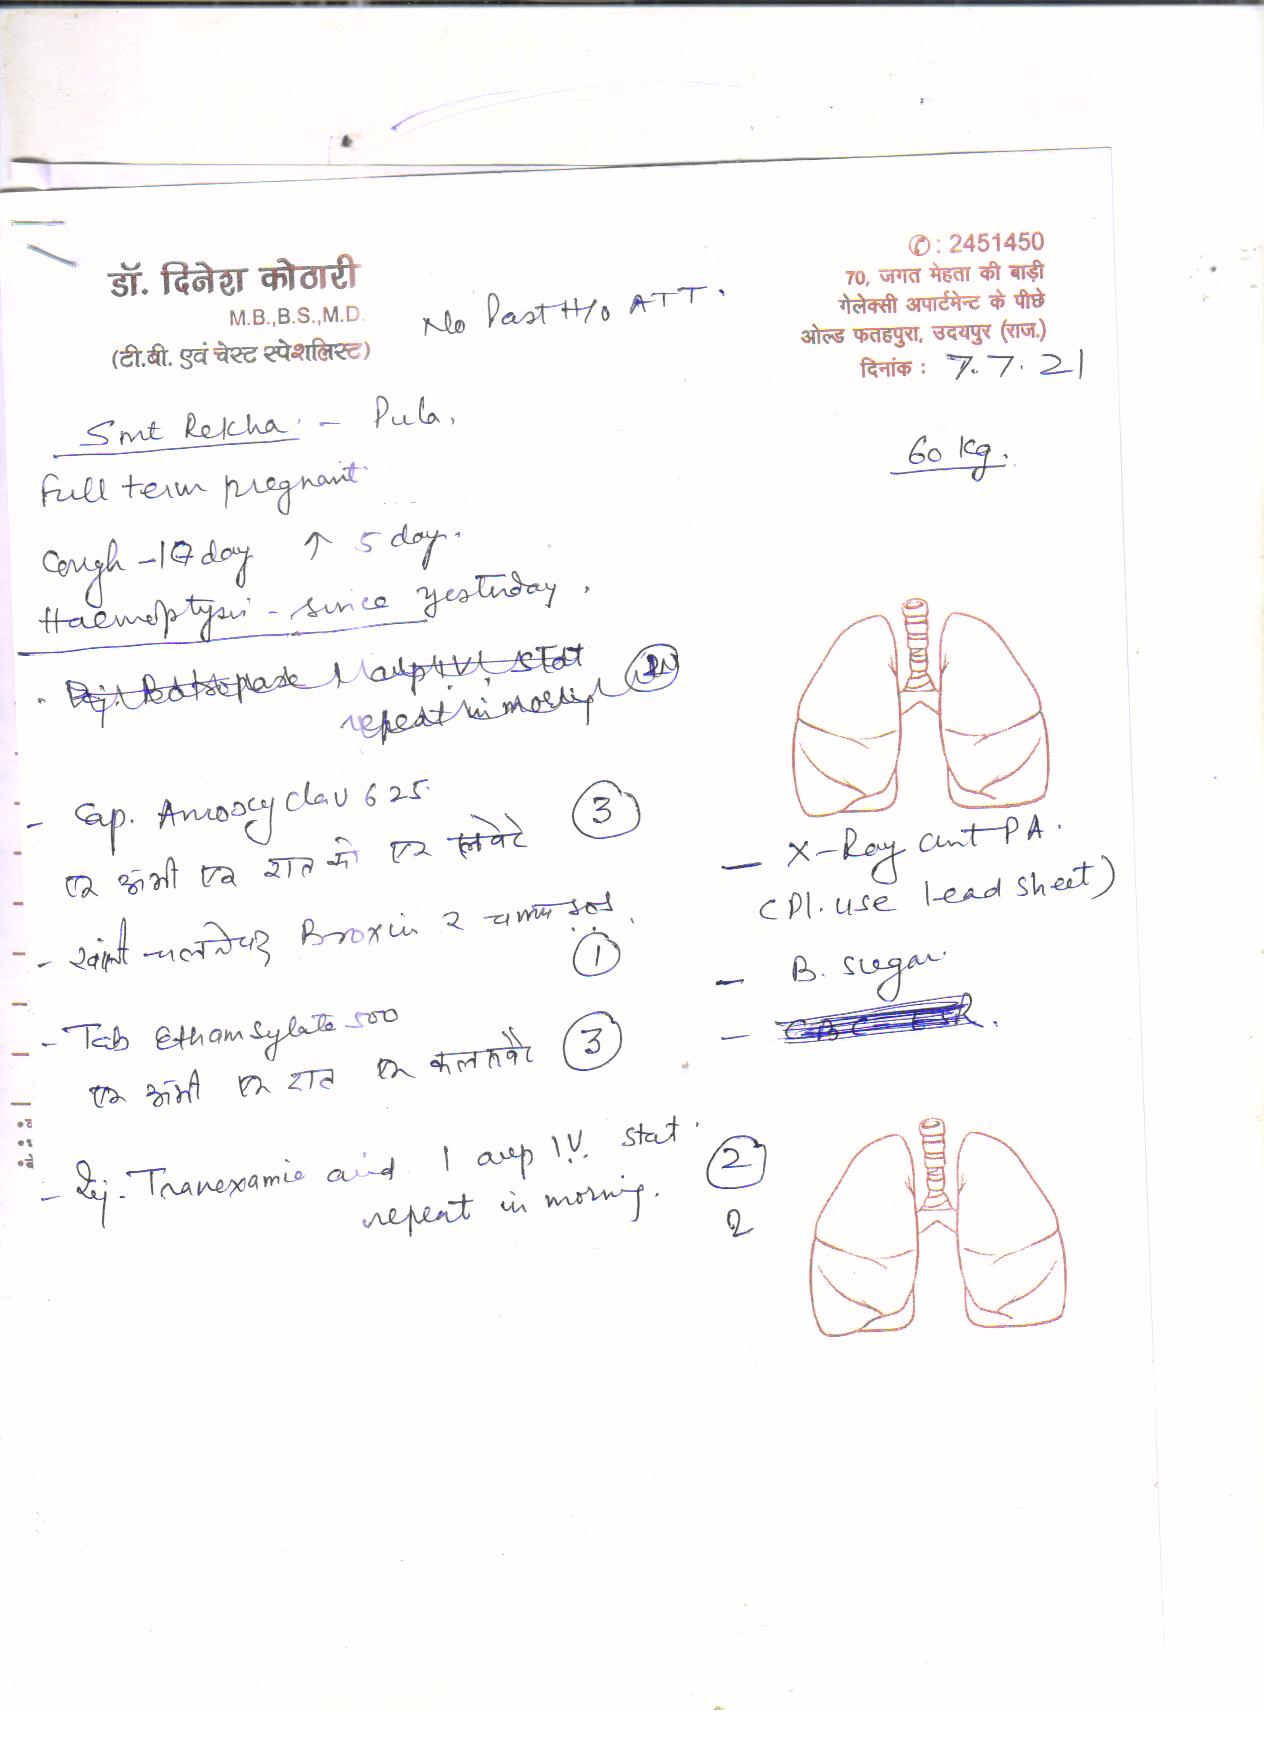 डॉ. दिनेश कोठारी
M.B.,B.S.,M.D.
(टी.बी. एवं चेस्ट स्पेशलिस्ट)
No Past H/o ATT.
✆ : 2451450
70, जगत मेहता की बाड़ी
गेलेक्सी अपार्टमेन्ट के पीछे
ओल्ड फतहपुरा, उदयपुर (राज.)
दिनांक : 7.7.21
Smt Rekha - Pula.
60 kg.
Full term pregnant
Cough - 10 day ↑ 5 day.
Haemoptysis - since yesterday.
Inj. 1 amp IV stat
repeat in morning
- Cap. Amoxyclav 625 (3)
एक अभी एक रात को एक सवेरे
- खांसी चलने पर Broxin 2 चम्मच SOS (1)
- Tab Ethamsylate 500
एक अभी एक रात एक कल सवेरे (3)
- Inj. Tranexamic acid 1 amp IV. stat. (2)
repeat in morning. 2
- X-Ray chest PA.
(Pl. use lead sheet)
- B. sugar.
- CBC ESR.